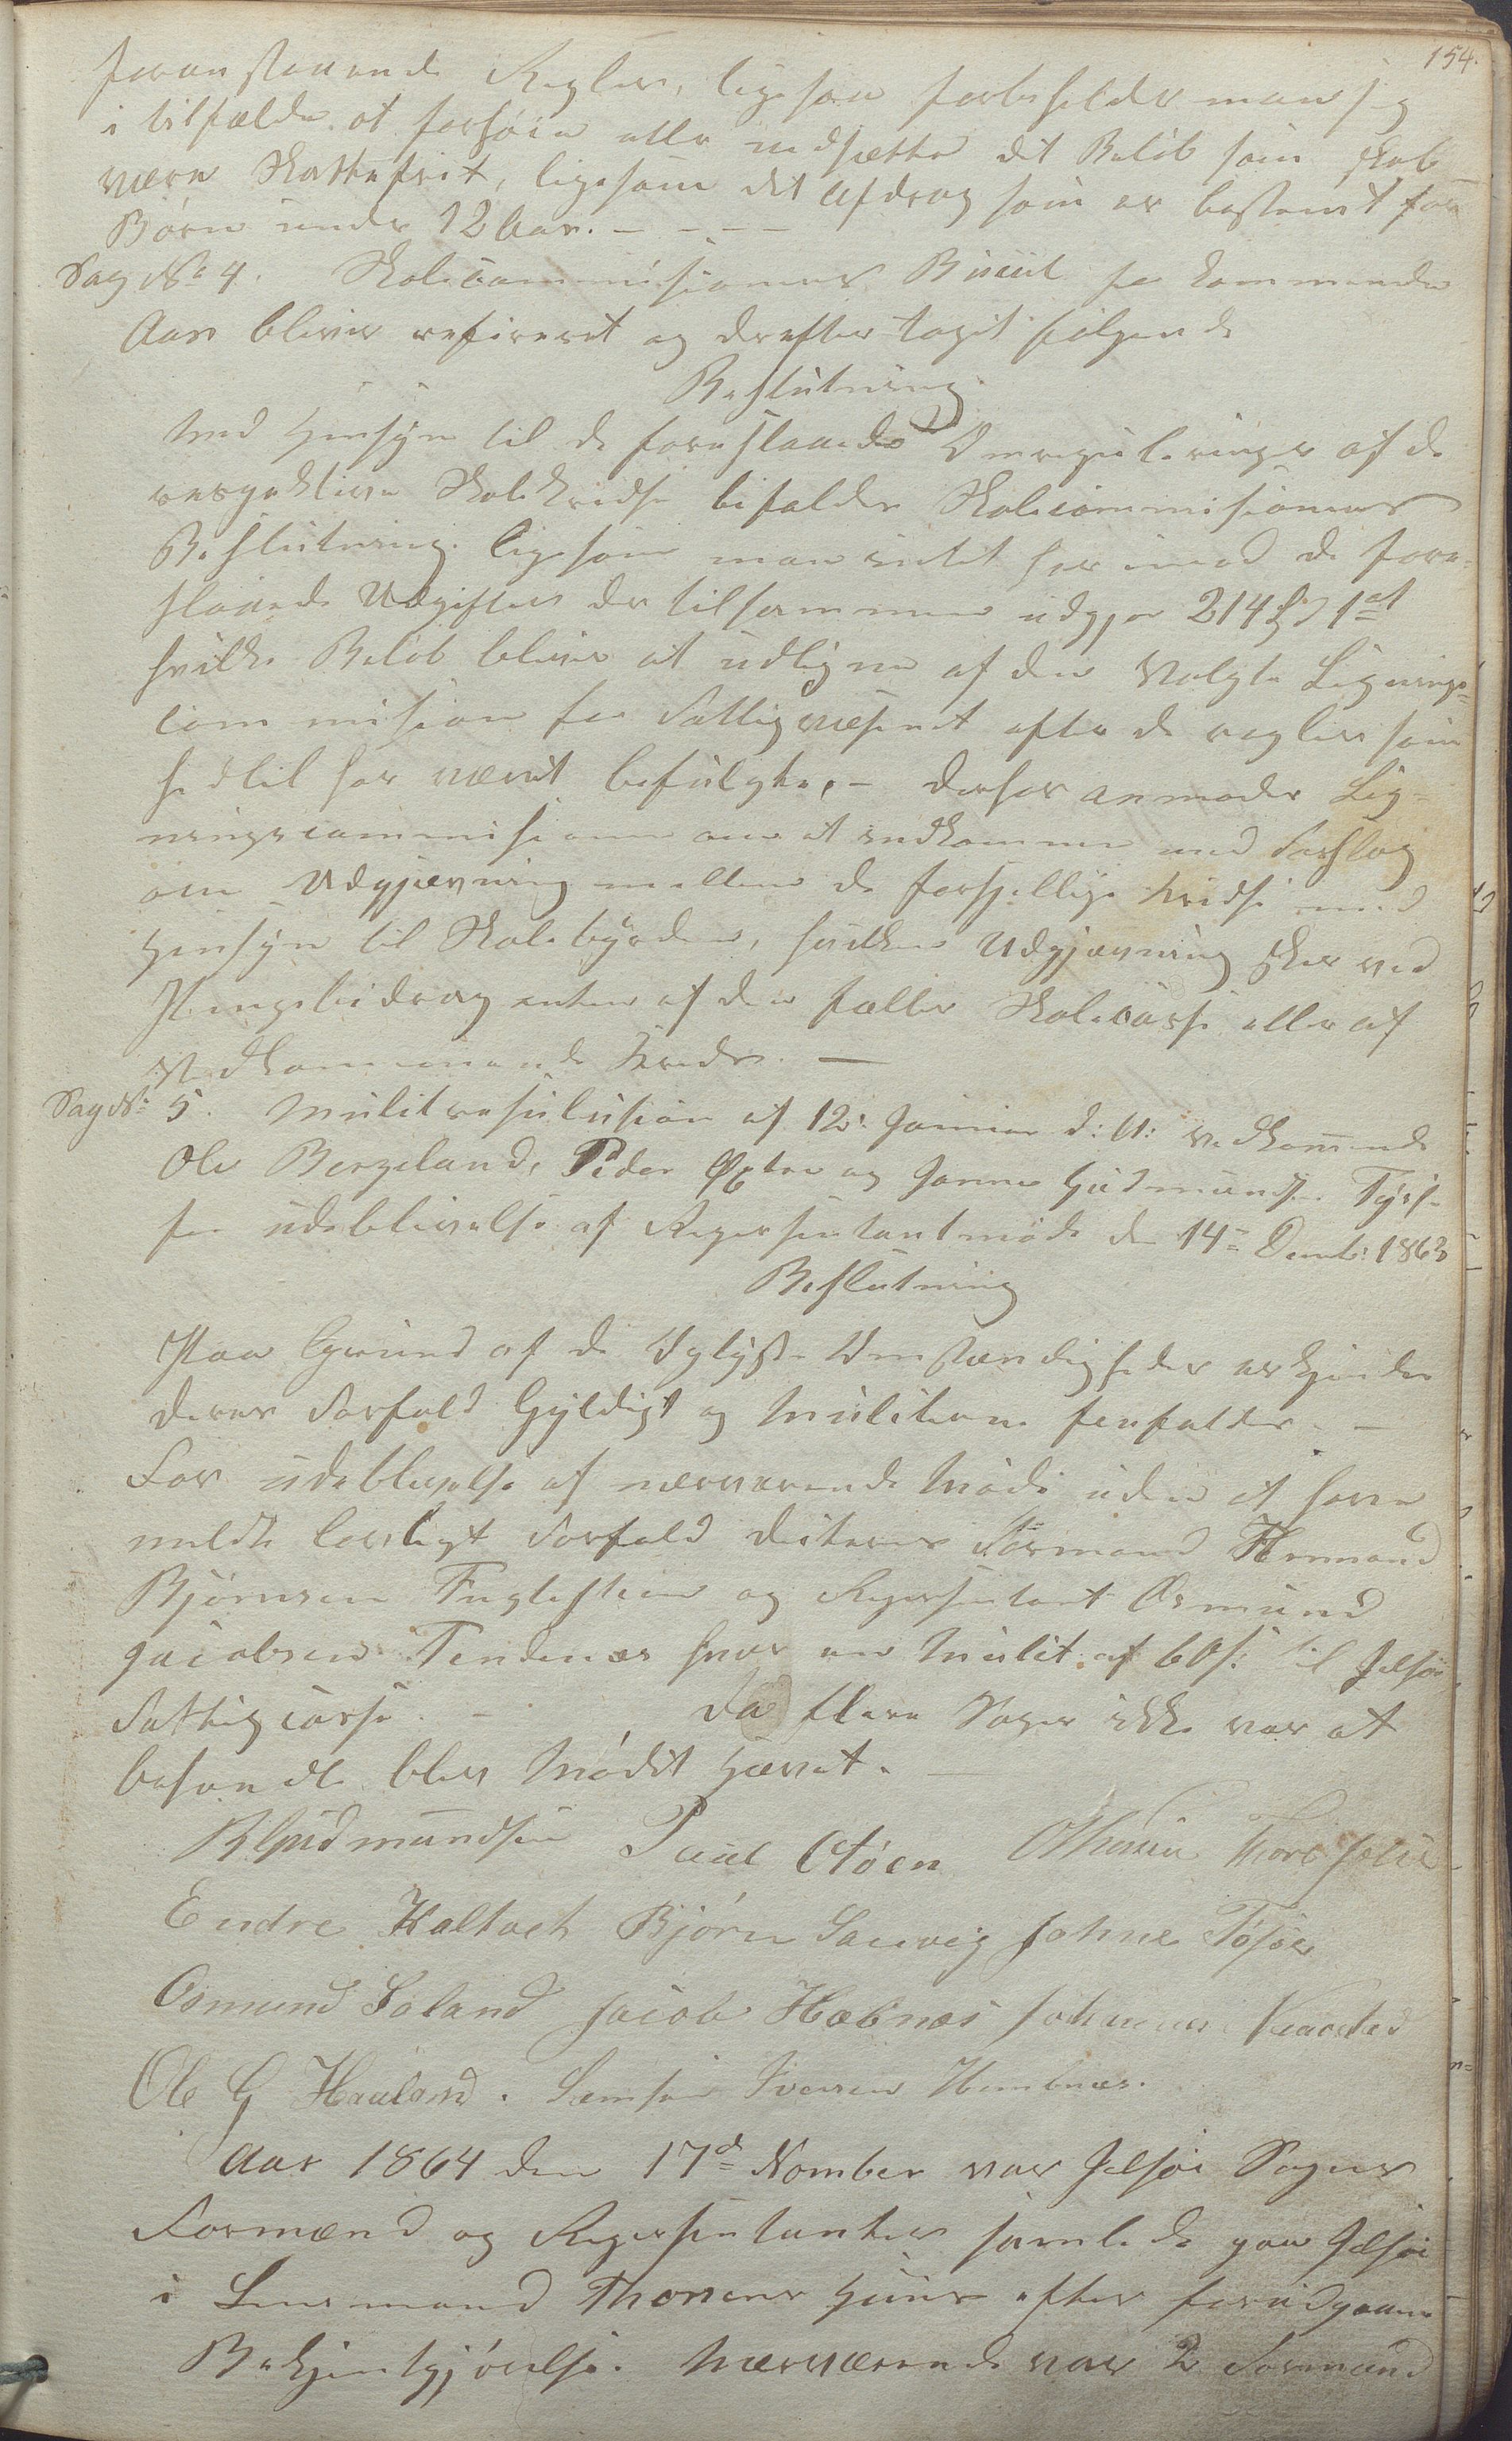 154.
foranstaaende Regler, ligesaa forbeholder man sig
i tilfælde at forhøie eller nedsætte det Beløb som skal
være Skattefrit, ligesom det Afdrag som er bestemt for
Børn under 12 Aar. – – – –
Sag No 4. Skolecommisionens Budjet for kommende
Aar blever refereret og derefter taget følgende
Beslutning.
Med Hensyn til de foreslaaede Omreguleringer af de
respektive Skolekredse bifaldes Skolecommisionens
Beslutning. ligesom man intet har imod de fore-
slaaede Udgifter der tilsammen udgjør 214 Spd 1 ort
hvilke Beløb bliver at udligne af den valgte Lignings-
commision for Fattigvæsenet efter de regler som
hidtil har været befulgte, – derhos anmodes Lig-
ningscommisionen om at indkomme med Forslag
om Udgjævning mellem de forskjellige Kredse med
Hensyn til Skolebyrden, hvilken Udgjævning sker ved
Pengebidrag enten af den fælles Skolecasse eller af
Vedkommende Kreds. —
Sag No 5. Mulktresulution af 12. Januar d: A: vedkommende
Ole Bergeland, Peder Øxtra og Janne Gudmundsen Tøsse
for udeblivelse af Repersentantmøde den 14de Decemb: 1863
Beslutning
Paa Grund af de Oplyste Omstændigheder erkjendes
deres Forfald Gyldigt og Mulkterne frafalder. —
For udeblivelse af nærværende Møde uden at have
meldt lovligt Forfald dicteres Formand Thormand
Bjørnsen Fuglestein og Repersentant Osmund
Jacobsen Tendenæs hver en Mulct af 60 s: til Jelsøe
Fattigcasse. – Da flere Sager ikke var at
behandle blev Mødet hævet. —
B Gudmundsen Paul Støen OThorsen Thore Jelsø
Endre Kaltvet Bjørn Sanvig Johne Tøsse
Osmund Foland Jacob Hæbnæs Johannes
Ole G Hauland. Samson Iversen Hembnæs.
Aar 1864 den 17de Novmber var Jelsøe Sogns
Formænd og Repersentanter samlede paa Jelsøe
i Lensmand Thorsens Huus efter forudgaaende
Bekjendtgjørelse. Nærværende var 2 Formænd